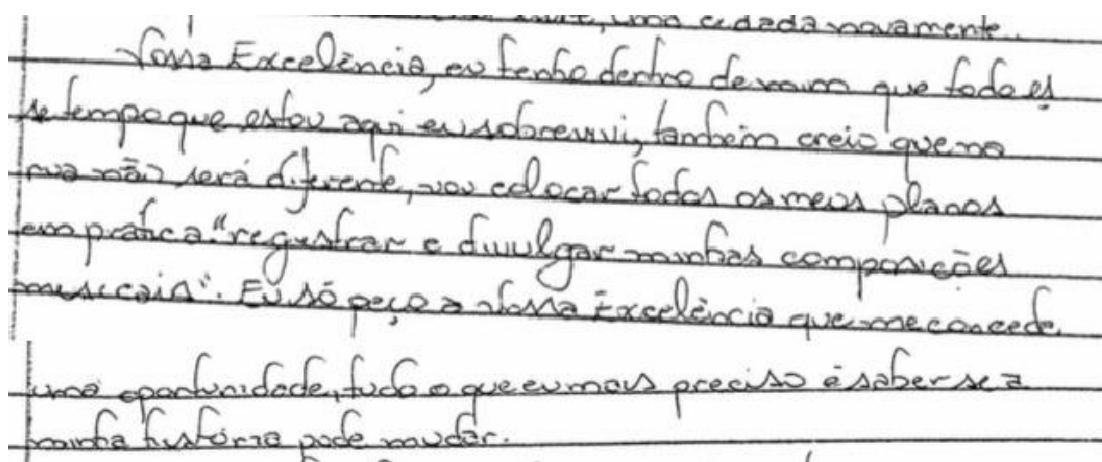 uma cidadã novamente.
Vossa Excelência, eu tenho dentro de mim que todo es
se tempo que estou aqui eu sobrevivi, também creio que na
rua não será diferente, vou colocar todos os meus planos
em prática "registrar e divulgar minhas composições
musicais". Eu só peço a Vossa Excelência que me concede
uma oportunidade, tudo o que eu mais preciso é saber se a
minha história pode mudar.